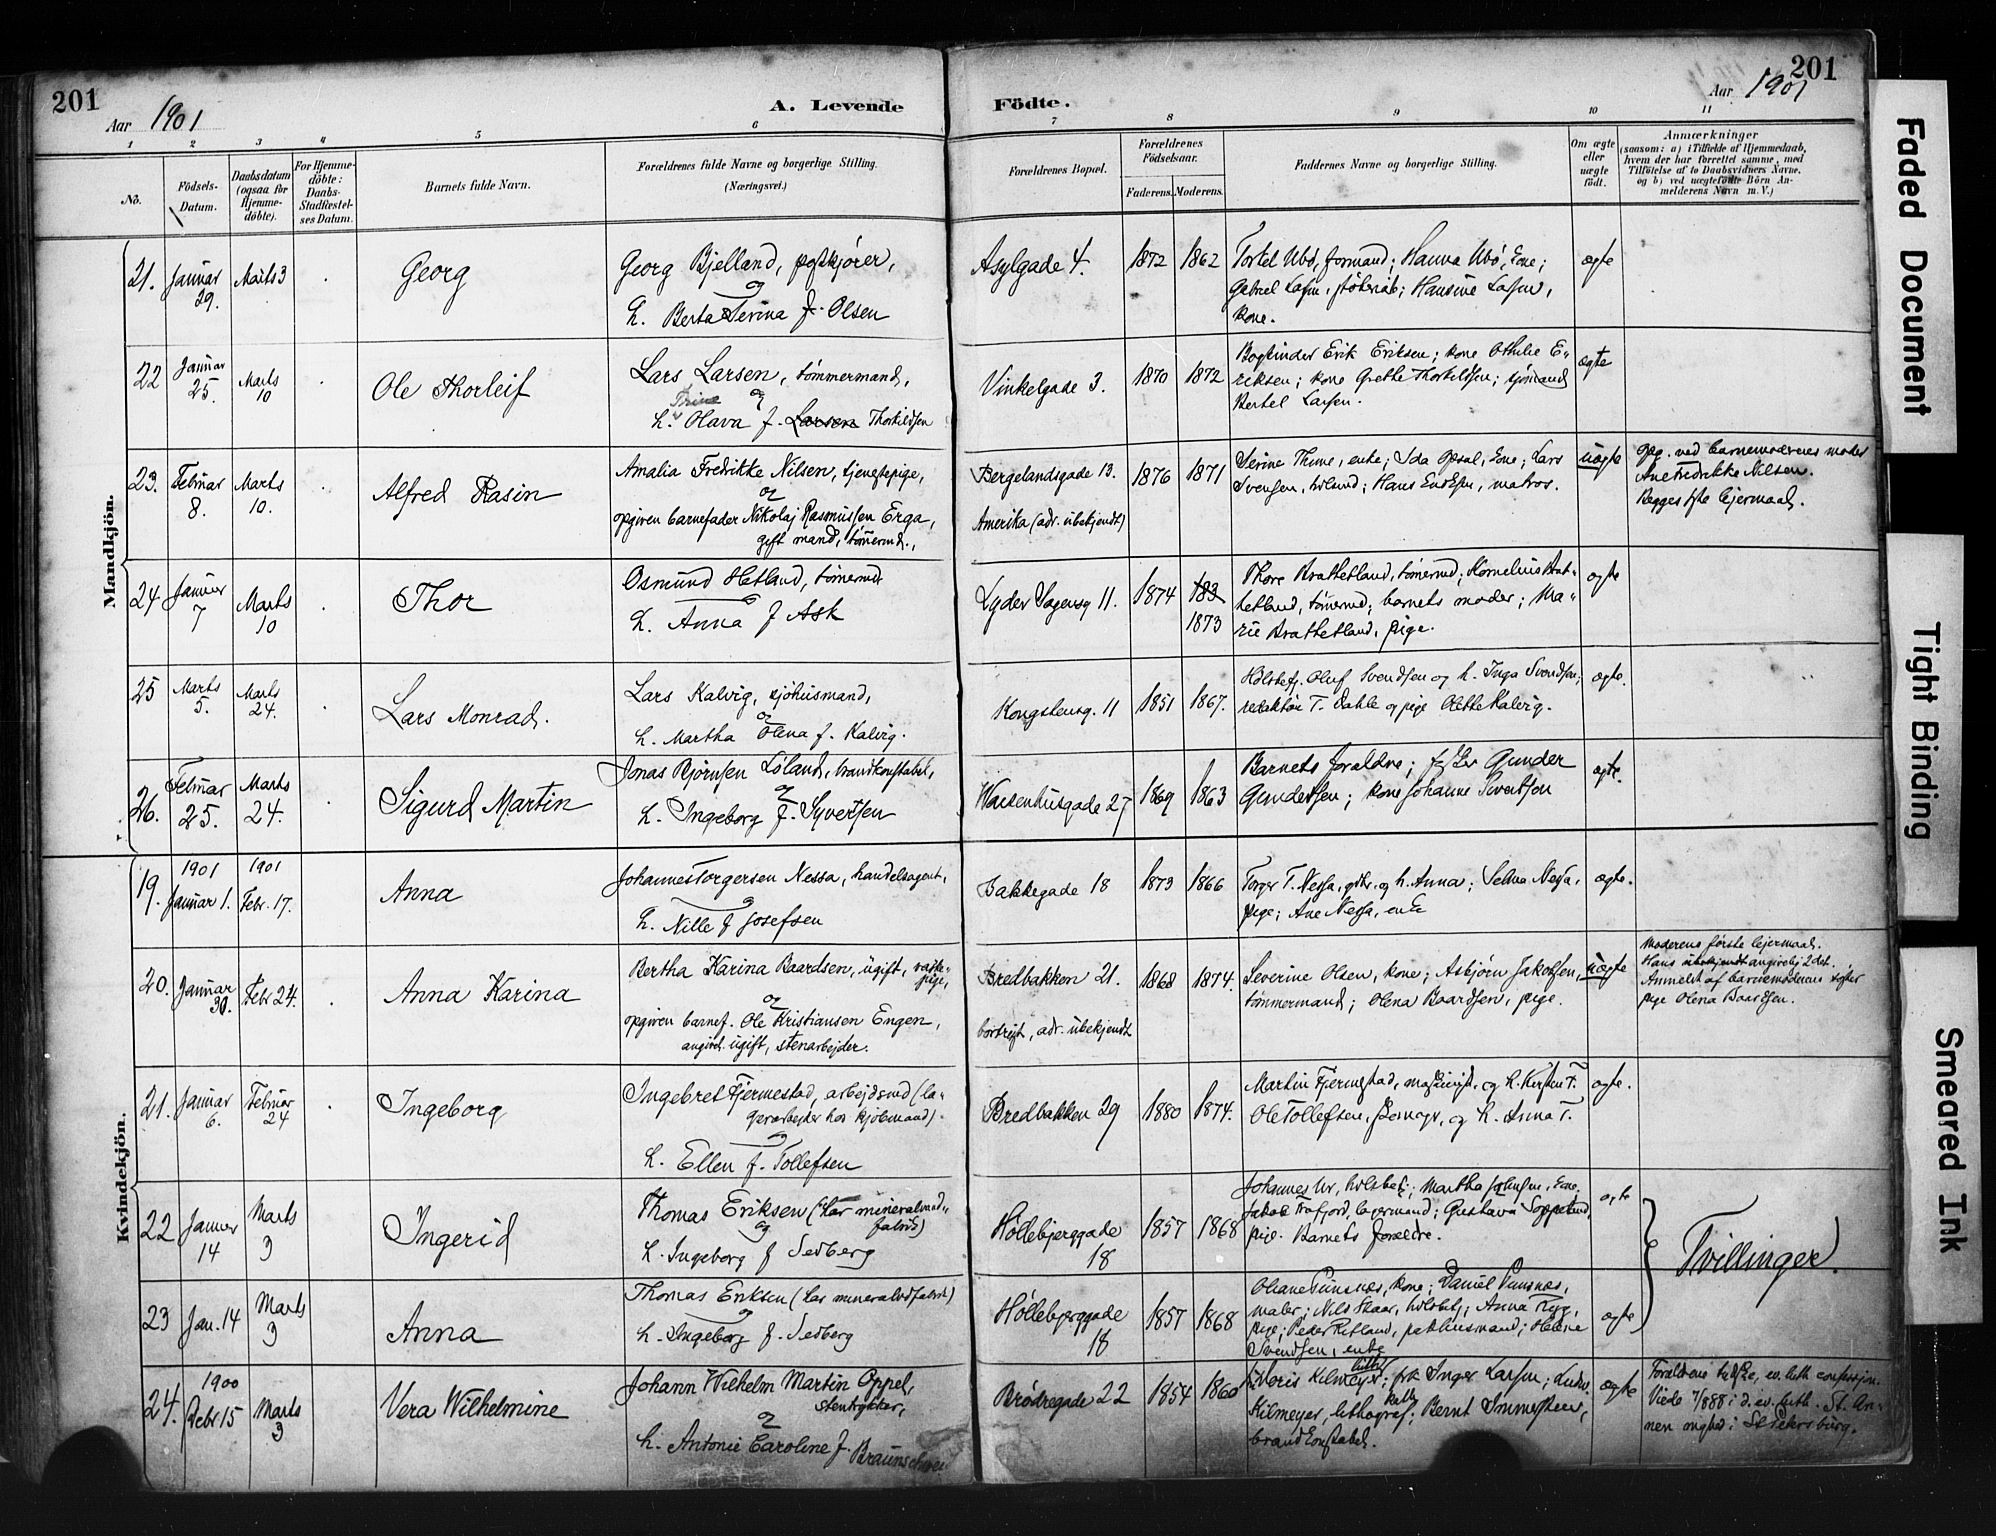 201
Aar 1901
A. Levende
Födte.
201
Aar 1901
1 2 3 4 5 6 7 8 9 10 11
No.
Födsels-
Datum.
Daabsdatum
(ogsaa for
Hjemme-
döbte).
For Hjemme-
döbte:
Daabs-
Stadfæstel-
ses Datum.
Barnets fulde Navn.
Forældrenes fulde Navne og borgerlige Stilling.
(Næringsvei.)
Forældrenes Bopæl.
Forældrenes
Födselsaar.
Faderens. Moderens.
Faddernes Navne og borgerlige Stilling.
Om ægte
eller
uægte
født.
Anmærkninger
(saasom: a) i Tilfælde af Hjemmedaab,
hvem der har forrettet samme, med
Tilföielse af to Daabsvidners Navne,
og b) ved uægtefödte Börn An-
melderens Navn m. V.)
Mandkjön.
21. Januar
29.
Marts 3
Georg
Georg Bjelland, postkjører,
og
h. Berta Serina f. Olsen
Asylgade 4.
1872 1862
Tortel Ubø, formand; Hanna Ubø, kone;
Gabriel Larsen, ; Hansine Larsen,
kone.
ægte
22 Januar
25.
Marts
10
Ole Thorleif
Lars Larsen, tømmermand,
og
Trine
h. Olava f. Larsen Thorkildsen
Vinkelgade 3.
1870 1872
Bogbinder Erik Eriksen; kone Othilie E-
riksen; kone Grethe Thorkildsen; sjømand
Bertel Larsen.
ægte
23. Februar
8.
Marts
10.
Alfred Rasin
Amalia Fredrikke Nilsen, tjenestepige,
og
opgiven barnefader Nikolaj Rasmussen Erga,
gift mand, tømmermd.,
Bergelandsgade 13.
Amerika (adr. ubekjendt)
1876 1871
Serine Thime, enke; Ida Opsal, kone; Lars
Svensen, ; Hans Endresen, matros.
uægte
Opg. ved barnemoderens moder
Ane Fredrikke Nilsen.
Begges 1ste lejermaal.
24 Januar
7
Marts
10
Thor
Osmund Hetland, tømermd.
og
h. Anna f Ask
Lyder Sagensg 11.
1874 183
1873
Thore Brattetland, tømermd; Kornelius Brat-
tetland, tømermd; barnets moder; Ma-
rie Brattetland, pige.
ægte
25 Marts
5.
Marts
24.
Lars Monrad.
Lars Kalvig, sjøhusmand,
og
h. Martha Olena f. Kalvig.
Kongstensg. 11
1851 1867.
Oluf Svendsen og h. Inga Svendsen;
redaktør T. Dahle og pige Olette Kalvig.
ægte.
26. Februar
25.
Marts
24.
Sigurd Martin
Jonas Bjørnsen Løland, brandkonstabel,
og
h. Ingeborg f. Syvertsen
Waisenhusgade 27
1869 1863
Barnets forældre; Gunder
Gundersen; kone Johanne Sivertsen
ægte.
Kvindekjön.
19. 1901
Januar 1.
1901
Febr. 17.
Anna
Johannes Torgersen Nessa, handelsagent,
og
h. Nille f Josefsen
Bakkegade 18
1873 1866
Torger T. Nessa, gdbr. og h. Anna; Selma Nessa,
pige; Ane Nessa, enke
ægte.
20. Januar
30.
Febr 24.
Anna Karina
Bertha Karina Baardsen, ugift, vaske-
pige,
og
opgiven barnef. Ole Kristiansen Engen,
angivel. ugift, stenarbejder.
Bredbakken 21.
bortrejst, adr. ubekjendt
1868 1874.
Severine Olsen, kone; Asbjørn Jakobsen,
tømmermand; Olena Baardsen, pige.
uægte
Moderens første lejermaal.
Hans ubekjendt angivelig 2det.
Anmeldt af barnemoderens søster
pige Olena Baardsen.
21. Januar
6.
Februar
24
Ingeborg
Ingebret Fjermestad, arbejdsmd (la-
gerarbejder hos kjøbmand).
og
h. Ellen f. Tollefsen
Bredbakken 29
1880 1874.
Martin Fjermestad, maskinist, og h. Kirsten F.
Ole Tollefsen, , og h. Anna T.
ægte.
22 Januar
14
Marts
3
Ingerid
Thomas Eriksen (har mineralvand-
fabrik)
og
h. Ingeborg f Sedberg
Høllebjerggade
18
1857 1868
Johannes Ur, ; Martha Johnsen, kone;
Jakob Frafjord, lagermand; Gustava Soppeland,
pige. Barnets forældre.
ægte
Tvillinger.
23 Jan. 14
Marts
3
Anna
Thomas Eriksen (har mineralvdfabrik)
og
h. Ingeborg f. Sedberg
Høllebjerggade
18
1857 1868
Oliane Tunsnæs, kone; Daniel Tunsnæs,
maler; Nils Skaar, ; Anna Ryg,
pige; Peder Retland, pakhusmand; Helene
Svendsen, enke
ægte
24. 1900
Febr 15
Marts
3
Vera Wilhelmine
Johann Wilhelm Martin Oppel,
stentrykker,
og
h. Antonie Caroline f. Braunschwei
Brødregade 22
1854 1860
Doris Kilmeyer; frk Inger Larsen; Ludv.
Kilmeyer, lithograf; Bernt Immersteen,
brandkonstabel.
ægte
Forældrene tydske, ev. luth. confession.
Viede 1888 i d. ev. luth. St. An-
nen i St Petersburg.
Faded Document
Tight Binding
Smeared Ink